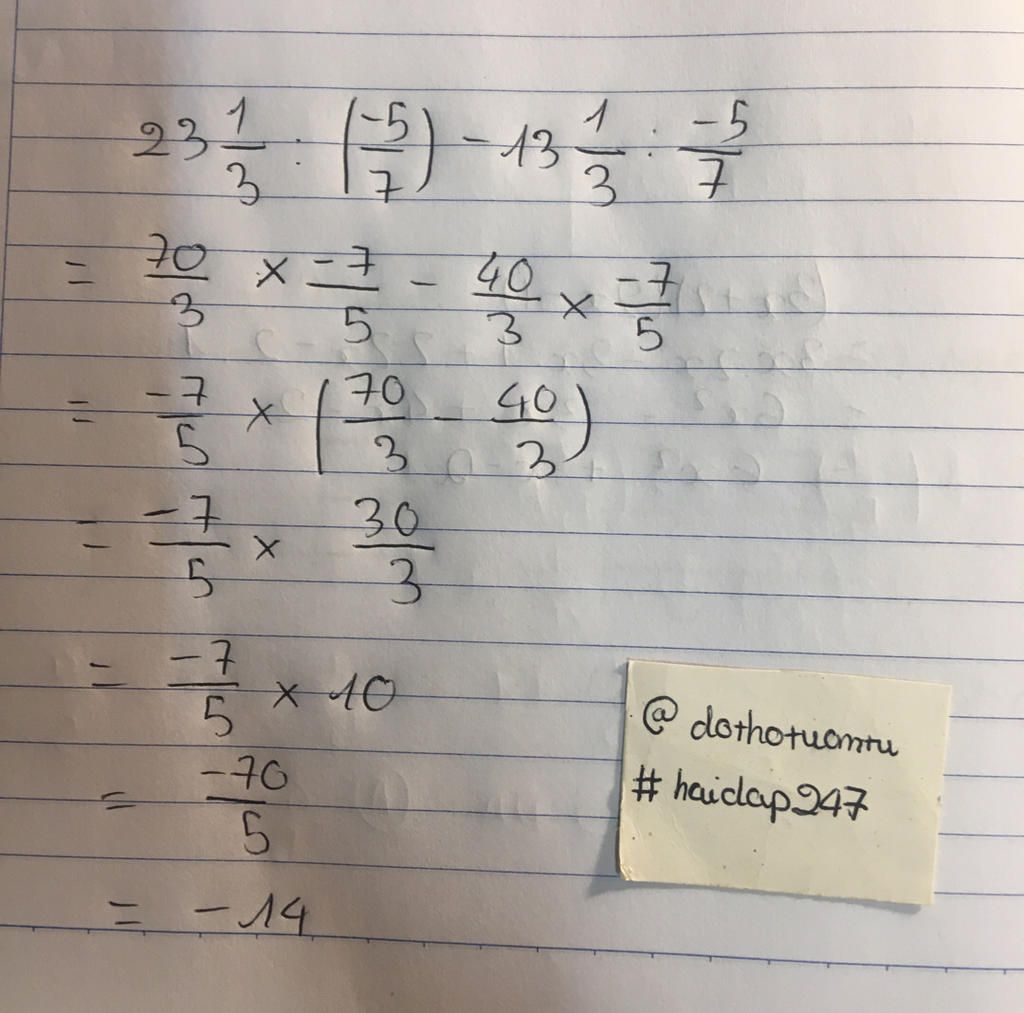 23 1/3 : (-5/7) - 13 1/3 : -5/7
= 70/3 × -7/5 - 40/3 × -7/5
= -7/5 × (70/3 - 40/3)
= -7/5 × 30/3
= -7/5 × 10
= -70/5
= -14
@ dothotuomtu
# haidap247